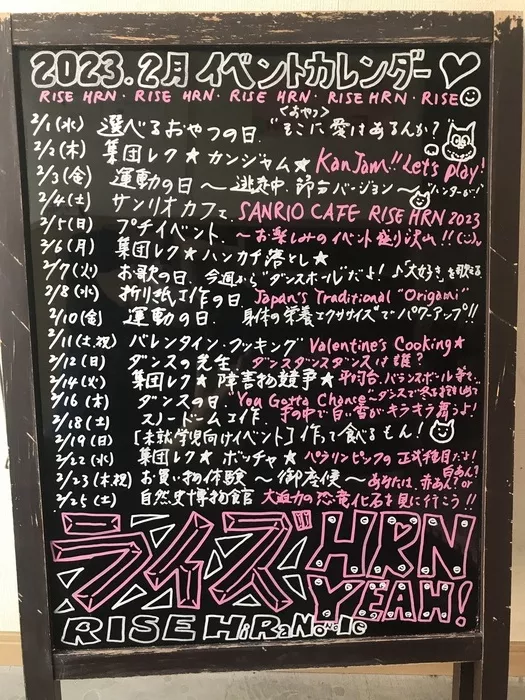 2023.2月 イベントカレンダー
RISE HRN・RISE HRN・RISE HRN・RISE HRN・RISE
<おやつ>
2/1(水) 選べるおやつの日 "そこに愛はあるんか?"
2/2(木) 集団レク★カンジャム★ KanJam!! Let's play!
2/3(金) 運動の日〜逃走中 節分バージョン〜 "ハンターが…!"
2/4(土) サンリオカフェ SANRIO CAFE RISE HRN 2023
2/5(日) プチイベント 〜お楽しみのイベント盛り沢山!!
2/6(月) 集団レク★ハンカチ落とし★
2/7(火) お歌の日 今週から"ダンスホール"だよ! ♪"大好き"を歌える
2/8(水) 折り紙工作の日 Japan's Traditional "Origami"
2/10(金) 運動の日 身体の栄養エクササイズでパワーアップ!!
2/11(土,祝) バレンタインクッキング Valentine's Cooking★
2/12(日) ダンスの先生 ダンスダンスダンスは誰?
2/14(火) 集団レク★障害物競争★平均台,バランスボール等で…
2/16(木) ダンスの日 "You Gotta Chance〜ダンスで冬を抱きしめて
2/18(土) スノードーム工作 手の中で白い雪がキラキラ舞うよ!
2/19(日) [未就学児向けイベント]作って食べるもん!
2/22(水) 集団レク★ボッチャ★ パラリンピックの正式種目だよ!
2/23(木祝) お買い物体験〜御座候〜 あなたは、赤あん?or 白あん?
2/25(土) 自然史博物館 大迫力の恐竜化石を見に行こう!!
ライズ HRN
YEAH!
RISE HiRaNo